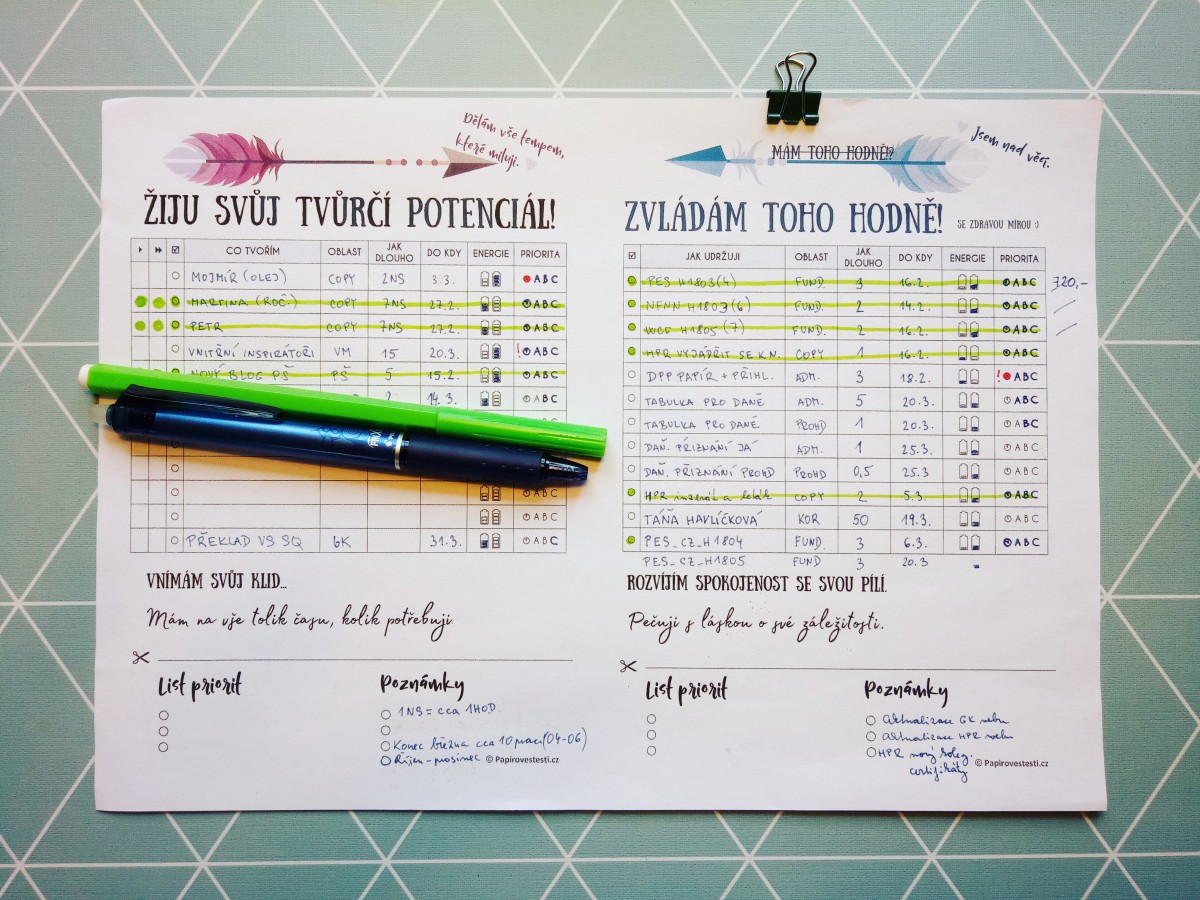 Dělám vše tempem,
které miluji.
ŽIJU SVŮJ TVŮRČÍ POTENCIÁL!
CO TVOŘÍM OBLAST JAK DLOUHO DO KDY ENERGIE PRIORITA
MOJMÍR (OLEJ) COPY 2NS 3.3. ABC
MARTINA (ROČ.) COPY 7NS 27.2. ABC
PETR COPY 7NS 27.2. ABC
VNITŘNÍ INSPIRÁTOŘI VM 15 20.3. ! ABC
NOVÝ BLOG PŠ PŠ 5 15.2. ABC
2 14.3. ABC
ABC
ABC
PŘEKLAD VS SQ GK 31.3. ABC
VNÍMÁM SVŮJ KLID...
Mám na vše tolik času, kolik potřebuji
List priorit
Poznámky
1NS = cca 1HOD.
Konec března cca 10 prací (04-06)
Říjen - prosinec
© Papirovestesti.cz
MÁM TOHO HODNĚ!?
Jsem nad věcí.
ZVLÁDÁM TOHO HODNĚ! SE ZDRAVOU MÍROU :)
JAK UDRŽUJI OBLAST JAK DLOUHO DO KDY ENERGIE PRIORITA
PES H1803 (4) FUND. 3 16.2. ABC 720,-
NFNN H1803 (6) FUND. 2 14.2. ABC
WCF H1805 (7) FUND. 2 16.2. ABC
HPR VYJÁDŘIT SE K N. COPY 1 16.2. ABC
DPP PAPÍR + PŘIHL. ADM. 3 18.2. ! ABC
TABULKA PRO DANĚ ADM. 5 20.3. ABC
TABULKA PRO DANĚ PROHD 1 20.3. ABC
DAŇ. PŘIZNÁNÍ JÁ ADM. 1 25.3. ABC
DAŇ. PŘIZNÁNÍ PROHD PROHD 0,5 25.3 ABC
HPR inzerát a leták COPY 2 5.3. ABC
TÁŇA HAVLÍČKOVÁ KOR 50 19.3. ABC
PES_CZ_H1804 FUND. 3 6.3. ABC
PES_CZ_H1805 FUND 3 20.3
ROZVÍJÍM SPOKOJENOST SE SVOU PÍLÍ.
Pečuji s láskou o své záležitosti.
List priorit
Poznámky
Aktualizace GK webu
Aktualizace HPR webu
HPR nový
certifikáty
© Papirovestesti.cz